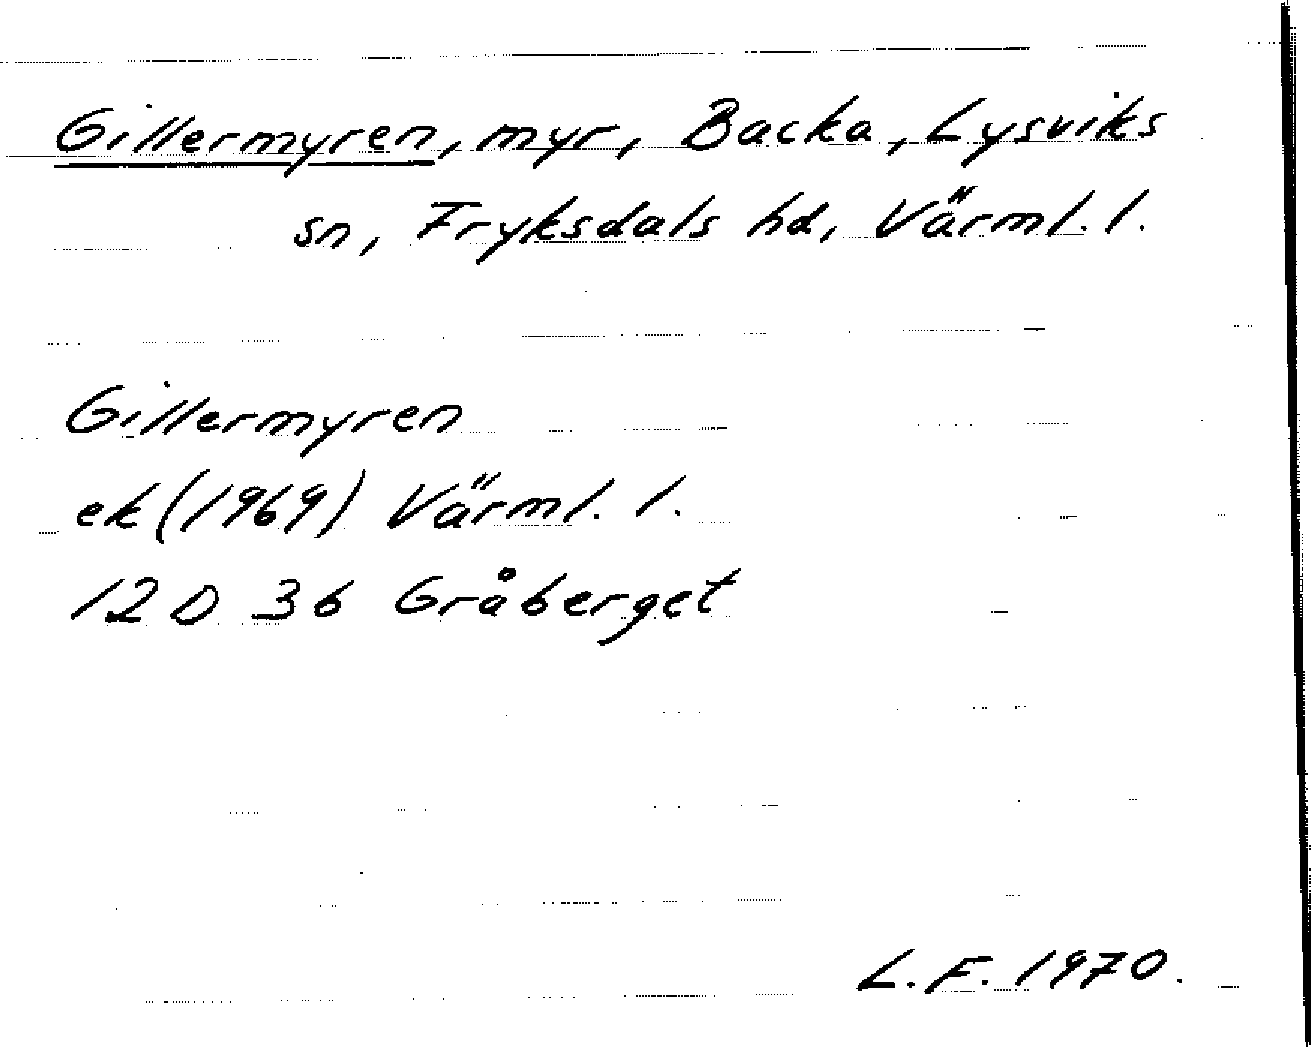 Gillermyren, myr, Backa, Lysviks
sn, Fryksdals hd, Värml. l.
Gillermyren
ek (1969) Värml. l.
12 D 3b Gråberget
L.F. 1970.